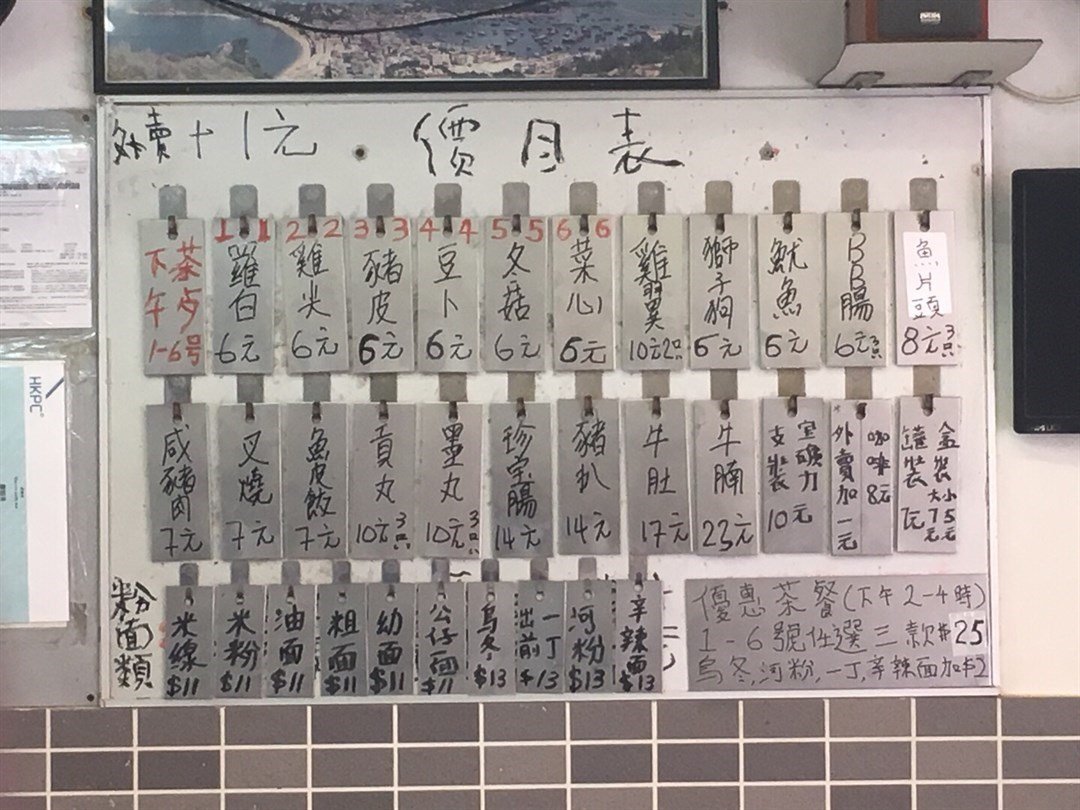 外賣+1元 價目表
下午茶 1-6号
1 蘿白 1 6元
2 雞尖 2 6元
3 豬皮 3 6元
4 豆卜 4 6元
5 冬菇 5 6元
6 菜心 6 6元
雞翼 10元2只
獅子狗 6元
魷魚 6元
BB腸 6元3只
魚片頭 8元3只
咸豬肉 7元
叉燒 7元
魚皮餃 7元
貢丸 10元3只
墨丸 10元3只
珍宝腸 14元
豬扒 14元
牛肚 17元
牛腩 23元
支裝宝礦力 10元
咖啡8元
*外賣加一元
盒裝 大7元 小5元
罐裝 7元
粉面類
米線 $11
米粉 $11
油面 $11
粗面 $11
幼面 $11
公仔面 $11
烏冬 $13
出前一丁 $13
河粉 $13
辛辣面 $13
優惠茶餐(下午2-4時)
1-6號任選三款$25
烏冬,河粉,一丁,辛辣面加$2
HKPC